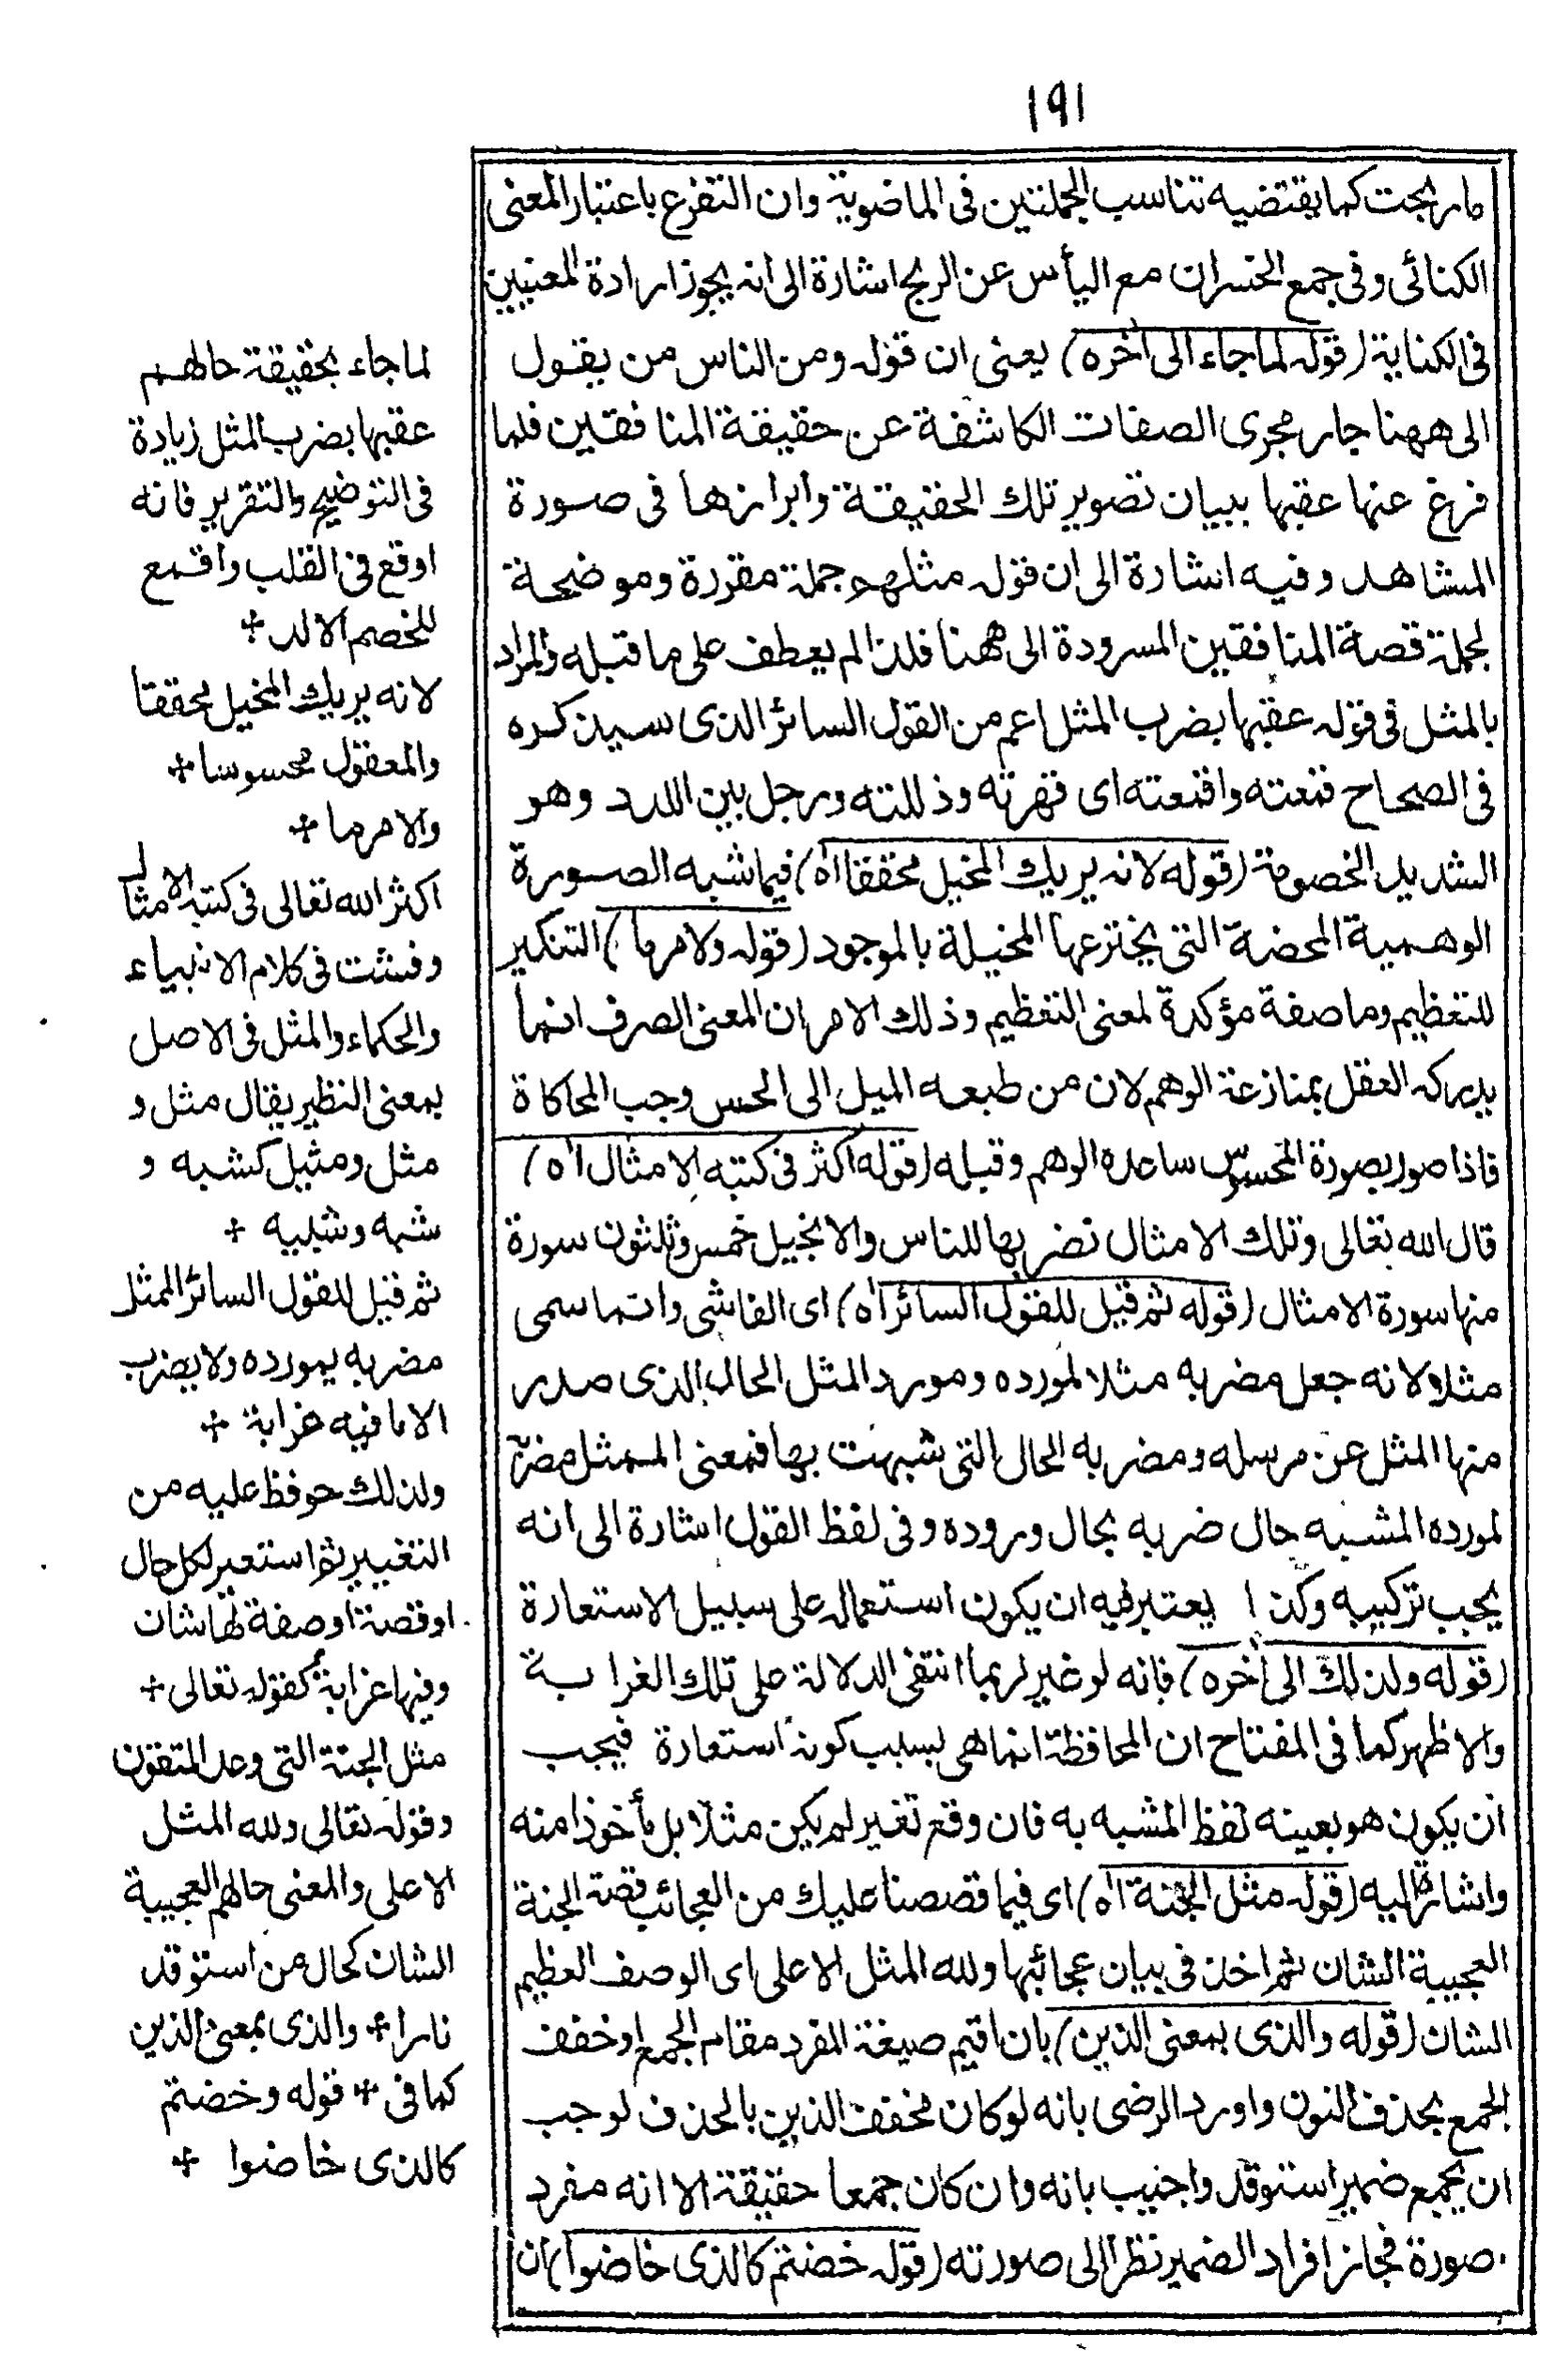 ١٩١
ما ربحت كما يقتضيه تناسب الجملتين فى الماضوية وان التفرع باعتبار المعنى
الكنائى وفى جمع الخسران مع اليأس عن الربح اشارة الى انه يجوز ارادة المعنيين
فى الكناية (قوله لما جاء الى آخره) يعنى ان قوله ومن الناس من يقول
الى ههنا جار مجرى الصفات الكاشفة عن حقيقة المنافقين فلما
فرغ عنها عقبها ببيان تصوير تلك الحقيقة وابرازها فى صورة
المشاهد وفيه اشارة الى ان قوله مثلهم جملة مقررة وموضحة
لجملة قصة المنافقين المسرودة الى ههنا فلذا لم يعطف على ما قبله والمراد
بالمثل فى قوله عقبها بضرب المثل اعم من القول السائر الذى سيذكره
فى الصحاح قمعته واقمعته اى قهرته وذللته ورجل بين اللدد وهو
الشديد الخصومة (قوله لانه يريك المخيل محققا اه) فيما شبه الصورة
الوهمية المحضة التى يخترعها المخيلة بالموجود (قوله ولامر ما) التنكير
للتعظيم وما صفة مؤكدة لمعنى التعظيم وذلك الامر ان المعنى الصرف انما
يدركه العقل بمنازعة الوهم لان من طبعه الميل الى الحس وحب المحاكاة
فاذا صور بصورة المحسوس ساعده الوهم وقبله (قوله اكثر فى كتبه الامثال اه)
قال الله تعالى وتلك الامثال نضربها للناس والانجيل خمس وثلثون سورة
منها سورة الامثال (قوله ثم قيل للقول السائر اه) اى الفاشى وانما سمى
مثلا لانه جعل مضربه مثلا لمورده ومورد المثل الحال الذى صدر
منها المثل عن مرسله ومضربه الحال التى شبهت بها فمعنى الممثل مضربه
لمورده المشبه حال ضربه بحال وروده وفى لفظ القول اشارة الى انه
يجب تركيبه وكذا يعتبر فيه ان يكون استعماله على سبيل الاستعارة
(قوله ولذلك الى آخره) فانه لو غير لربما انتفى الدلالة على تلك الغرابة
والاظهر كما فى المفتاح ان المحافظة انما هى بسبب كونه استعارة فيجب
ان يكون هو بعينه لفظ المشبه به فان وقع تغير لم يكن مثلا بل مأخوذا منه
واشارة اليه (قوله مثل الجنة اه) اى فيما قصصنا عليك من العجائب قصة الجنة
العجيبة الشان ثم اخذ فى بيان عجائبها ولله المثل الاعلى اى الوصف العظيم
الشان (قوله والذى بمعنى الذين) بان اقيم صيغة المفرد مقام الجمع او خفف
الجمع بحذف النون واورد الرضى بانه لو كان مخفف الذين بالحذف لوجب
ان يجمع ضمير استوقد واجيب بانه وان كان جمعا حقيقة الا انه مفرد
صورة فجاز افراد الضمير نظرا الى صورته (قوله خضتم كالذى خاضوا) ان
لما جاء بحقيقة حالهم
عقبها بضرب المثل زيادة
فى التوضيح والتقرير فانه
اوقع فى القلب واقمع
للخصم الالد +
لانه يريك المخيل محققا
والمعقول محسوسا +
ولامر ما +
اكثر الله تعالى فى كتبه الامثال
وفشت فى كلام الانبياء
والحكماء والمثل فى الاصل
بمعنى النظير يقال مثل و
مثل ومثيل كشبه و
شبه وشبيه +
ثم قيل للقول السائر الممثل
مضربه بمورده ولا يضرب
الا ما فيه غرابة +
ولذلك حوفظ عليه من
التغيير ثم استعير لكل حال
او قصة او صفة لها شان
وفيها غرابة كقوله تعالى +
مثل الجنة التى وعد المتقون
وقوله تعالى ولله المثل
الاعلى والمعنى حالهم العجيبة
الشان كحال من استوقد
نارا + والذى بمعنى الذين
كما فى + قوله وخضتم
كالذى خاضوا +